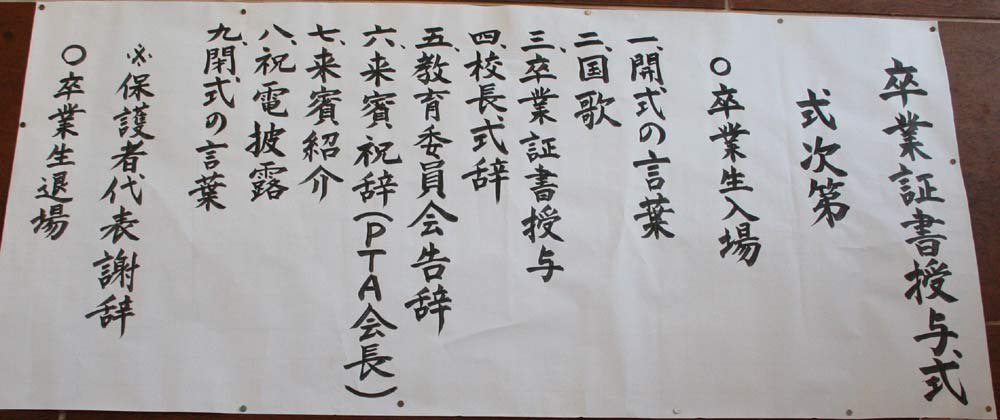 卒業証書授与式
式次第
○卒業生入場
一、開式の言葉
二、国歌
三、卒業証書授与
四、校長式辞
五、教育委員会告辞
六、来賓祝辞(PTA会長)
七、来賓紹介
八、祝電披露
九、閉式の言葉
※保護者代表謝辞
○卒業生退場